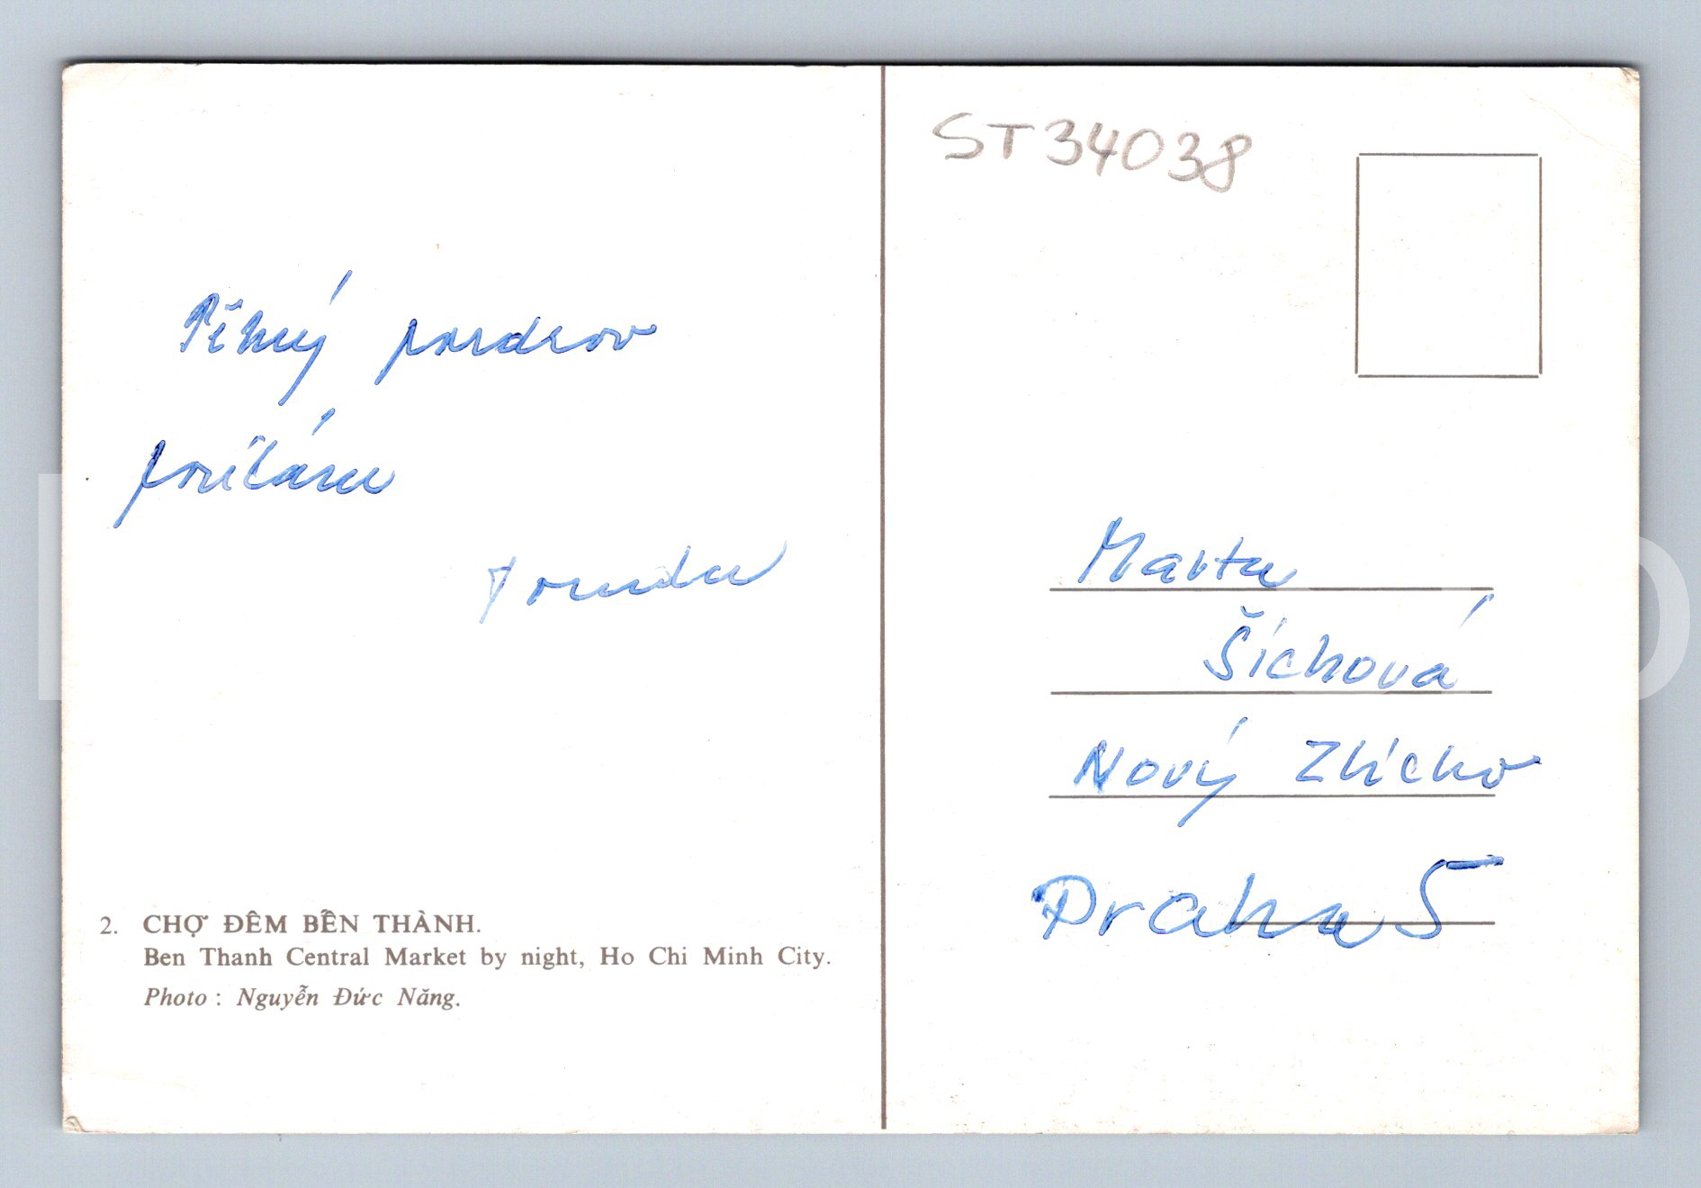 Pěkný pozdrav
posílá
ST34038
Marta
Šíchová
Nový Zlíchov
Praha 5
2. CHỢ ĐÊM BẾN THÀNH.
Ben Thanh Central Market by night, Ho Chi Minh City.
Photo : Nguyễn Đức Năng.